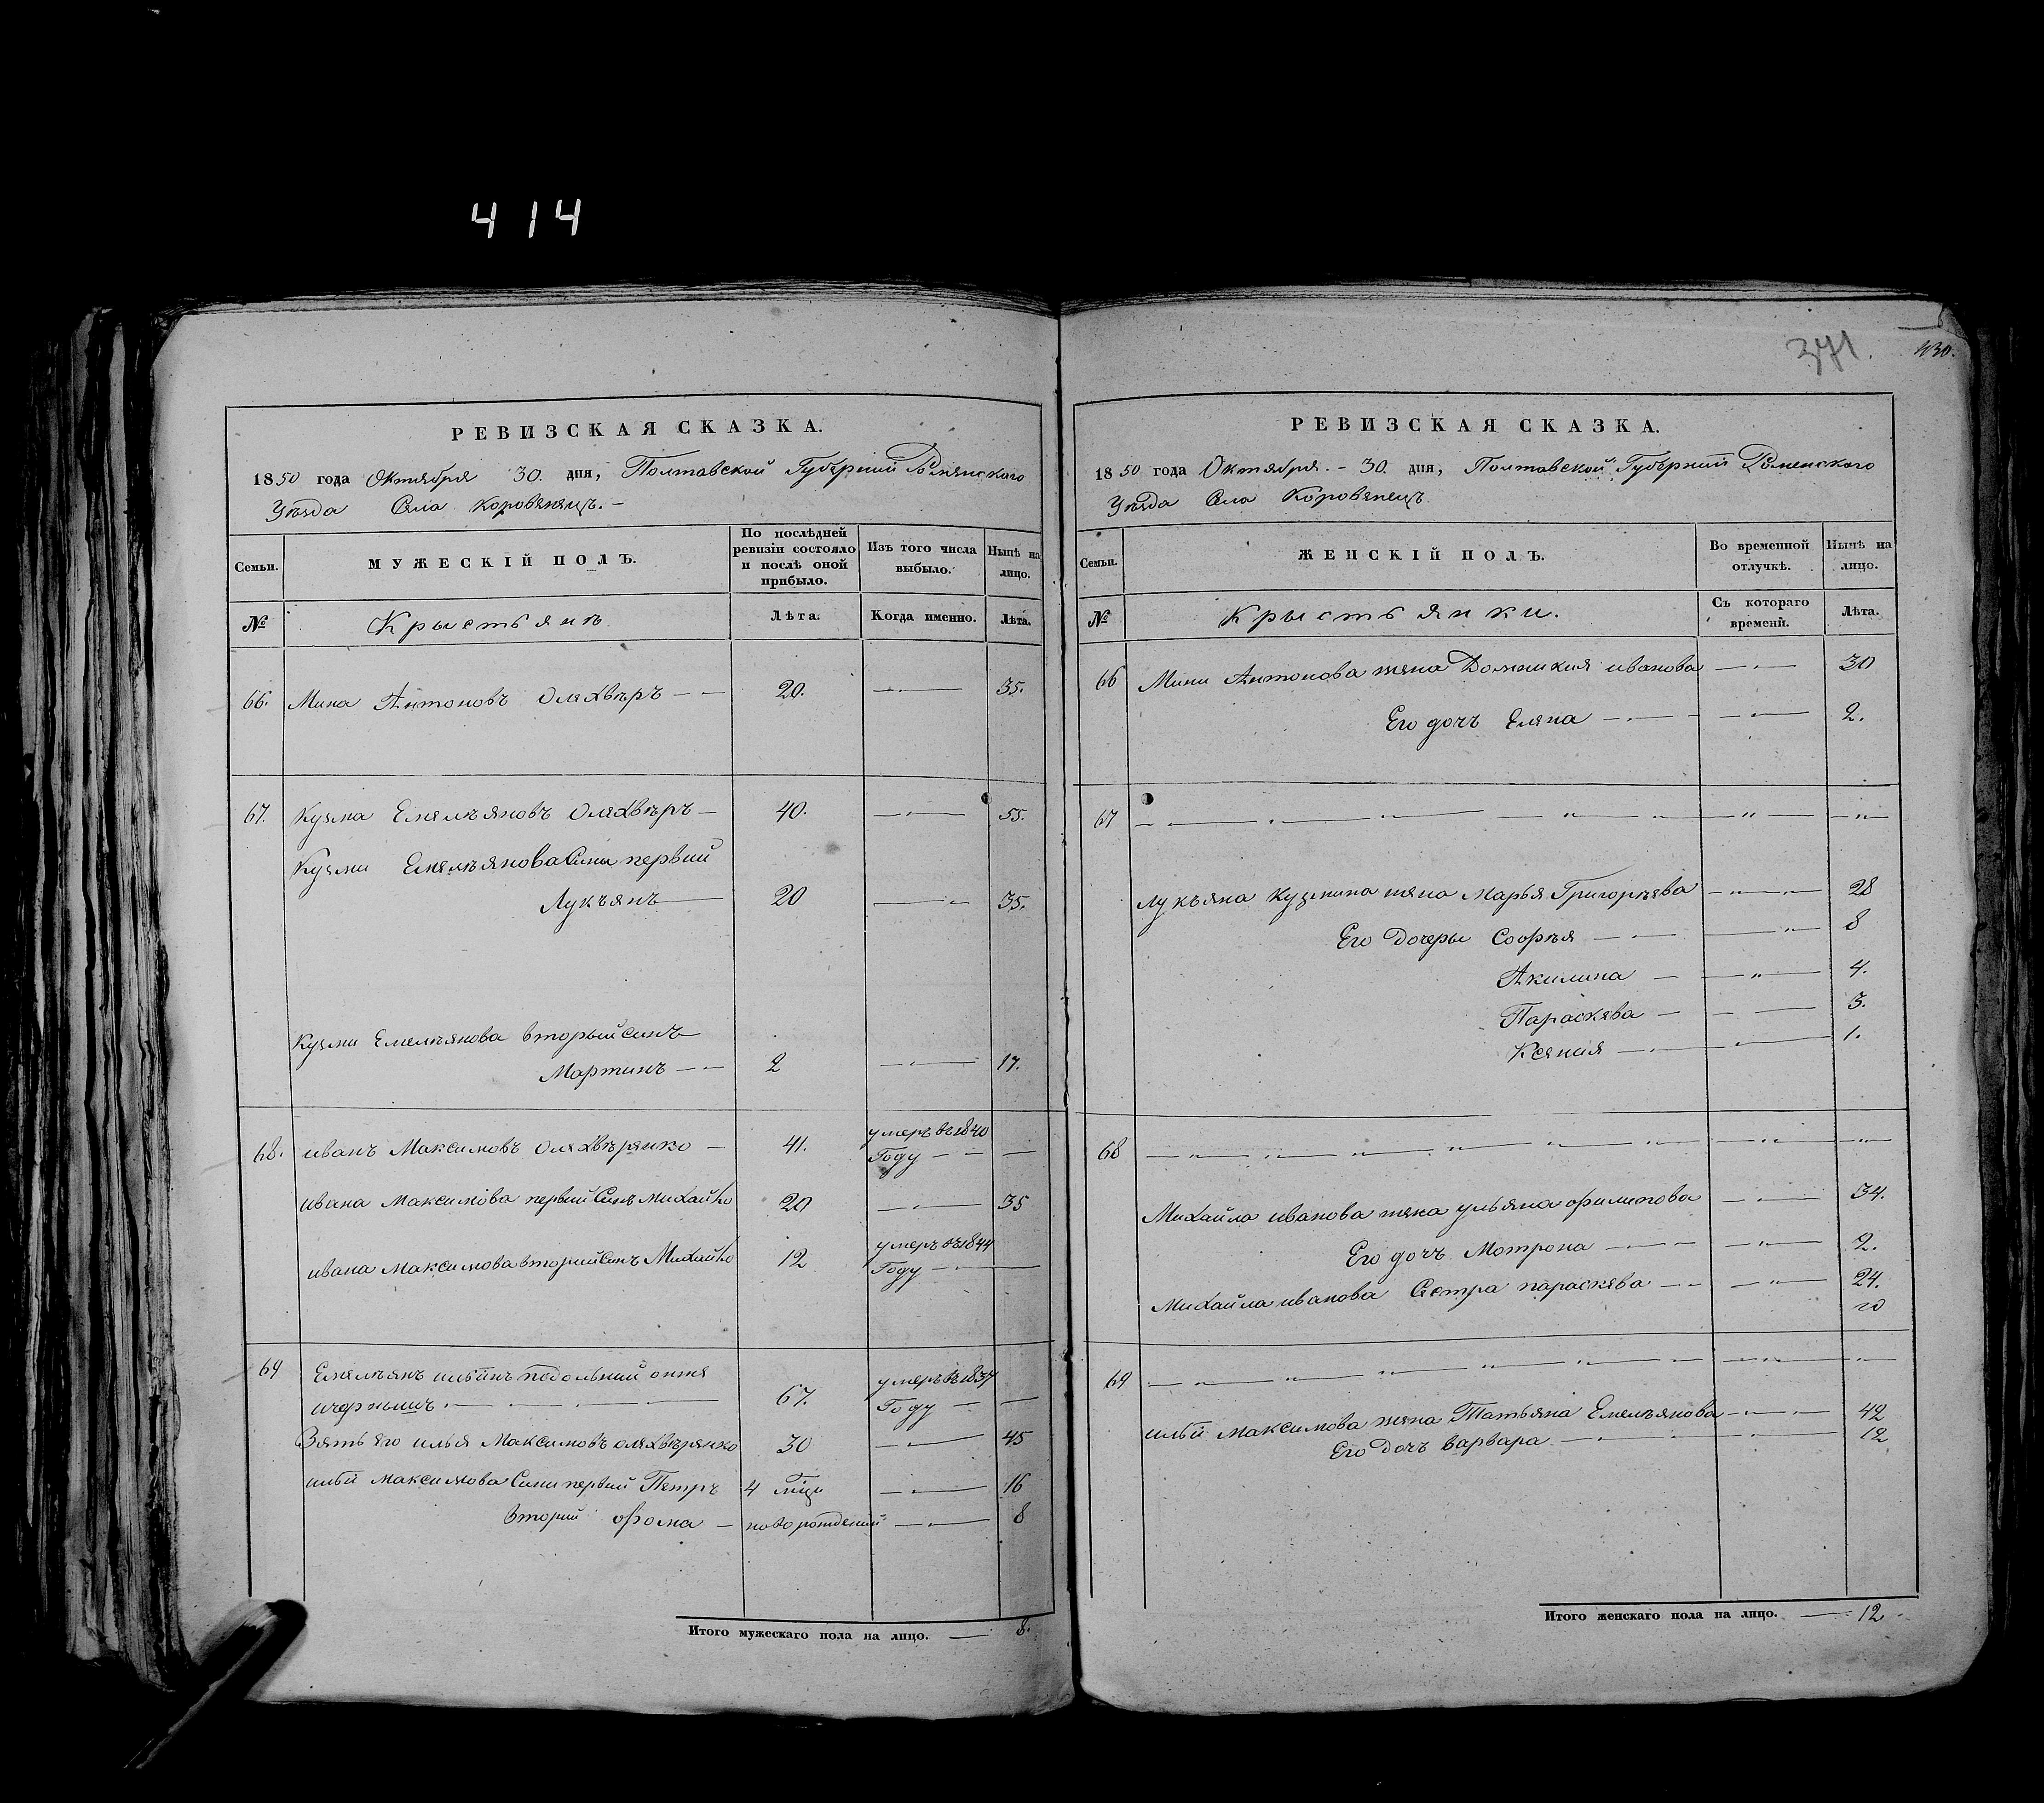 414
РЕВИЗСКАЯ СКАЗКА.
1850 года Октября 30. дня, Полтавской Губернии Роменского
Уезда Села Коровянецъ. –
Семьи.
МУЖЕСКІЙ ПОЛЪ.
По послѣдней ревизіи состояло и послѣ оной прибыло.
Изъ того числа выбыло.
Нынѣ на лицо.
№
Крыстьянъ
Лѣта.
Когда именно.
Лѣта.
66. Мина Антоновъ Оляхвѣръ 20. 35.
67. Кузма Емялъяновъ Оляхвѣръ 40. 55.
Кузми Емялъянова Сини первий
Лукъянъ 20 35.
Кузми Емелъянова вторый синъ
Мартинъ 2 17.
68. иванъ Максимовъ Оляхвѣрянко 41. умеръ въ 1840
Году
ивана Максимова первий Синъ Михайло 20 35
ивана Максимова вторий Синъ Михайло 12 умеръ въ 1844
Году
69 Емялъянъ ильинъ подольний онже
67. умеръ въ 1837
Году
Зять яго илья Максимовъ оляхвѣрянко 30 45
ильи Максимова Сини первий Пятръ 4 16
вторий Фома новорождений 8
Итого мужескаго пола на лицо. 8.
371. 430.
РЕВИЗСКАЯ СКАЗКА.
1850 года Октября. – 30. дня, Полтавской Губернии Роменского
Уезда Села Коровянецъ
Семьи.
ЖЕНСКІЙ ПОЛЪ.
Во временной отлучкѣ.
Нынѣ на лицо.
№
Крыстьянки.
Съ котораго времени.
Лѣта.
66 Мини Антонова жяна Домникия иванова 30
Его дочъ Еляна 2.
67
Лукъяна Кузмина жяна Марья Григорѣява 28
Его Дочеры Софѣя 8
Акилина 4.
Параскява 3.
Ксяния 1.
68
Михайла иванова жяна ульяна филипова 34.
Его дочъ Мотрона 2.
Михайла иванова Сястра параскява 24.
69
ильи Максимова жяна Татьяна Емелъянова 42
Его Дочъ варвара 12
Итого женскаго пола на лицо. 12.